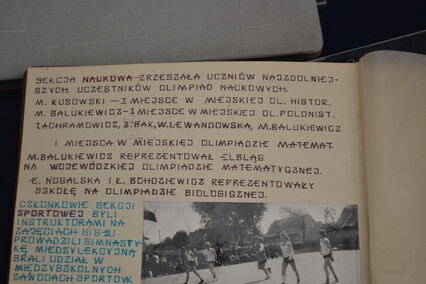 SEKCJA NAUKOWA ZRZESZAŁA UCZNIÓW NAJZDOLNIEJ-
SZYCH UCZESTNIKÓW OLIMPIAD NAUKOWYCH.
M. KUSOWSKI – I MIEJSCE W MIEJSKIEJ OL. HISTOR.
M. BALUKIEWICZ – I MIEJSCE W MIEJSKIEJ OL. POLONIST.
Z. BĄK, W. LEWANDOWSKA, M. BALUKIEWICZ
I MIEJSCA W MIEJSKIEJ OLIMPIADZIE MATEMAT.
M. BALUKIEWICZ REPREZENTOWAŁ ELBLĄG
NA WOJEWÓDZKIEJ OLIMPIADZIE MATEMATYCZNEJ.
E. NOGALSKA I Ł. BOHDZIEWICZ REPREZENTOWAŁY
SZKOŁĘ NA OLIMPIADZIE BIOLOGICZNEJ.
CZŁONKOWIE SEKCJI
SPORTOWEJ BYLI
INSTRUKTORAMI NA
ZAJĘCIACH SKS-U
PROWADZILI GIMNASTY-
KĘ MIĘDZYLEKCYJNĄ
BRALI UDZIAŁ W
MIĘDZYSZKOLNYCH
ZAWODACH SPORTOW.